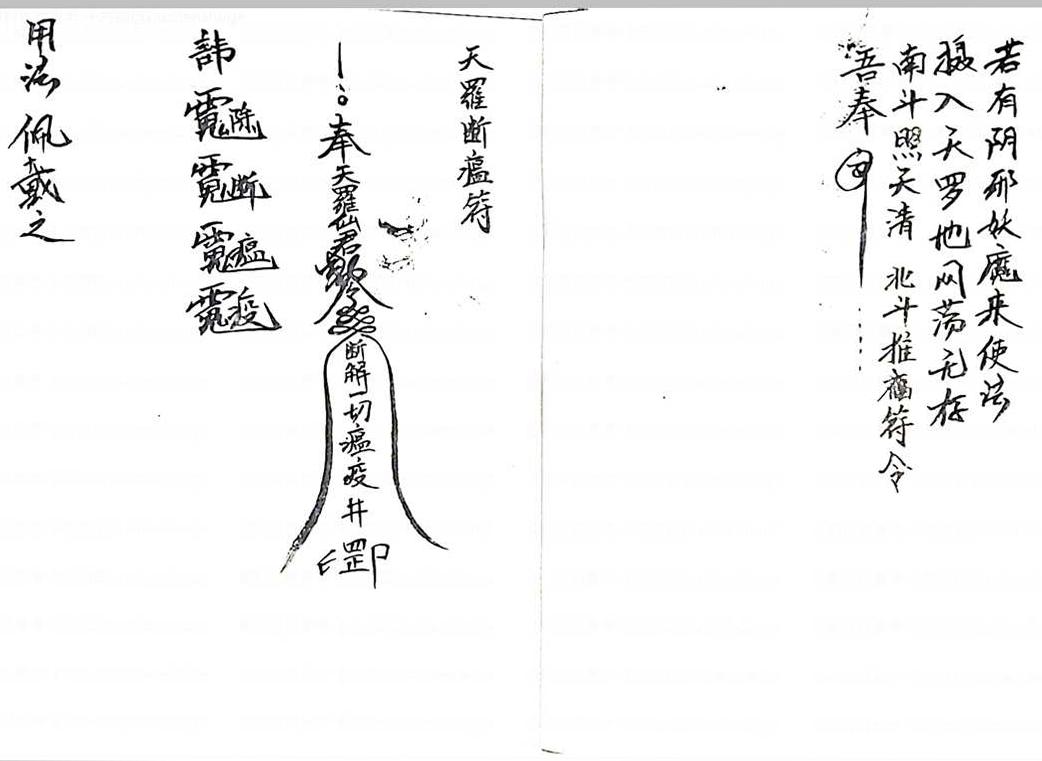 若有阴邪妖魔来使法
摄入天罗地网荡无存
南斗照天清 北斗推瘟符令
吾奉
天羅断瘟符
奉天羅仙君
断解一切瘟疫井
罡印
諱
除
断
瘟
疫
用法佩戴之